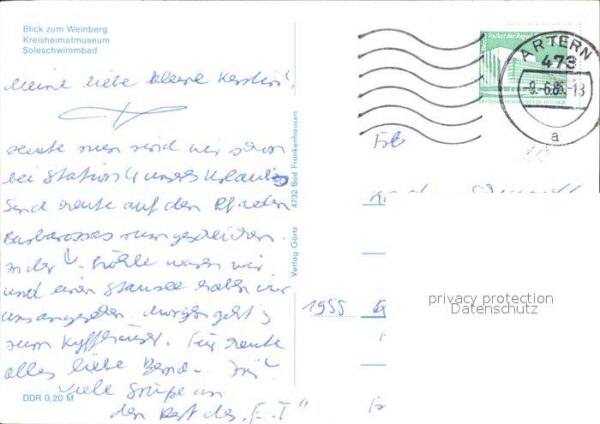 Blick zum Weinberg
Kreisheimatmuseum
Soleschwimmbad
Meine liebe kleine Kerstin!
heute nun sind wir schon
bei Station 4 unseres Urlaubs
Sind heute auf den Pfaden
Barbarossas rumgeschlichen.
In der Höhle waren wir
und einen Stausee haben wir
uns angesehen. Morgen geht's
zum Kyffhäuser. Für heute
alles liebe Bernd.
Viele Grüße an
den Rest der "E.T"
DDR 0,20 M
Verlag Görtz 4732 Bad Frankenhausen
Palast der Republik
ARTERN
473
-9.-6.86.-13
a
1955
privacy protection
Datenschutz